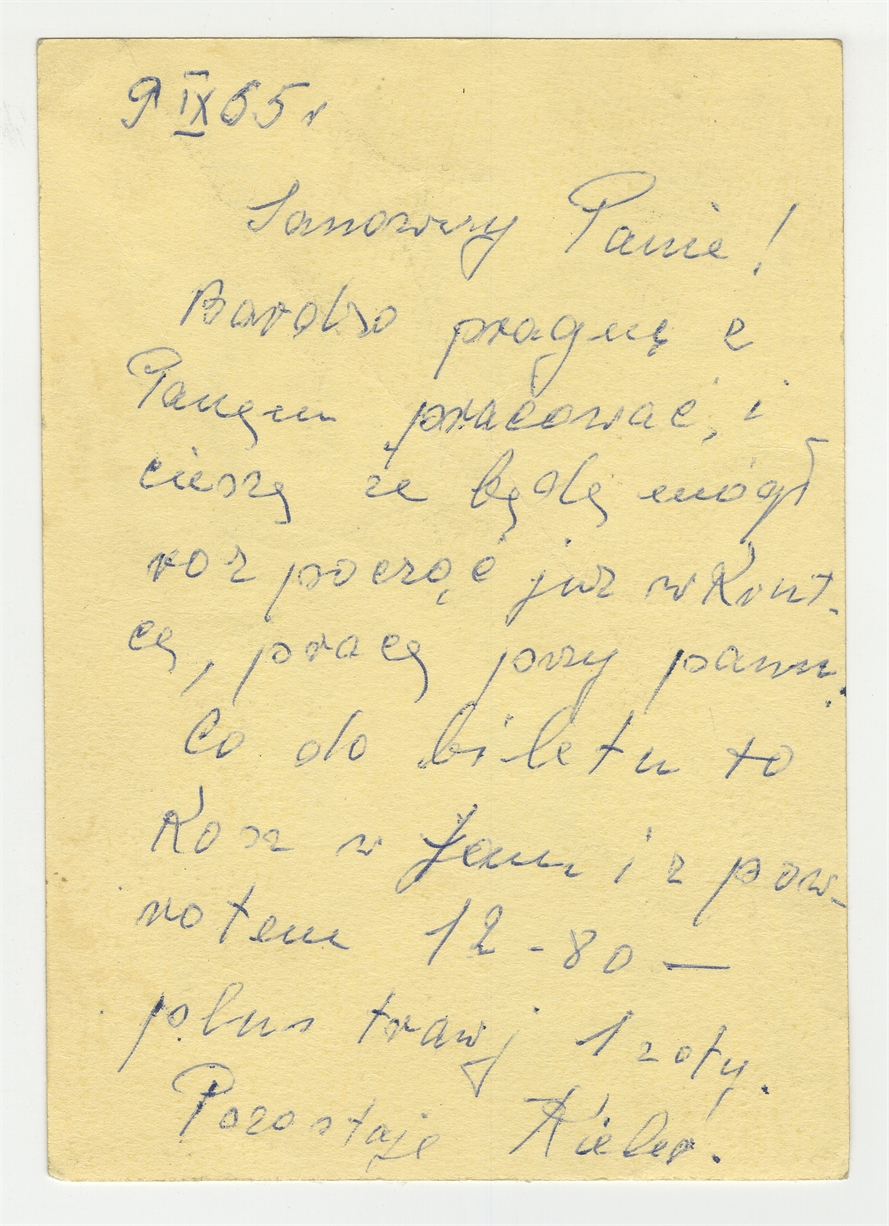 9 IX 65 r
Sanowny Panie!
Bardzo pragnę z
Panęm pracować, i
cieszę że będę mógł
roz począć już w Krut-
cę, pracę przy panu.
Co do biletu to
Kosz w Jem i z pow-
rotem 12-80 —
plus trawj 1 zoty.
Pozostaje Kieler.